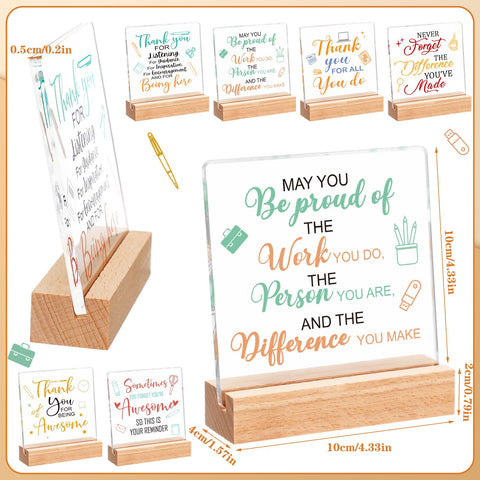 0.5cm/0.2in
Thank you
FOR
Listening
For Guidance
For Inspiration
For Encouragement
AND FOR
Being here
MAY YOU
Be proud of
THE
Work YOU DO,
THE
Person YOU ARE,
AND THE
Difference YOU MAKE
Thank
you
FOR ALL
You do
NEVER
Forget
THE
Difference
YOU'VE
Made
Thank you
FOR
Listening
For Guidance
For Inspiration
For Encouragement
AND FOR
Being here
MAY YOU
Be proud of
THE
Work YOU DO,
THE
Person YOU ARE,
AND THE
Difference YOU MAKE
10cm/4.33in
2cm/0.79in
4cm/1.57in
10cm/4.33in
Thank
You
FOR BEING
Awesome
Sometimes
YOU FORGET YOU'RE
Awesome
SO THIS IS
YOUR REMINDER